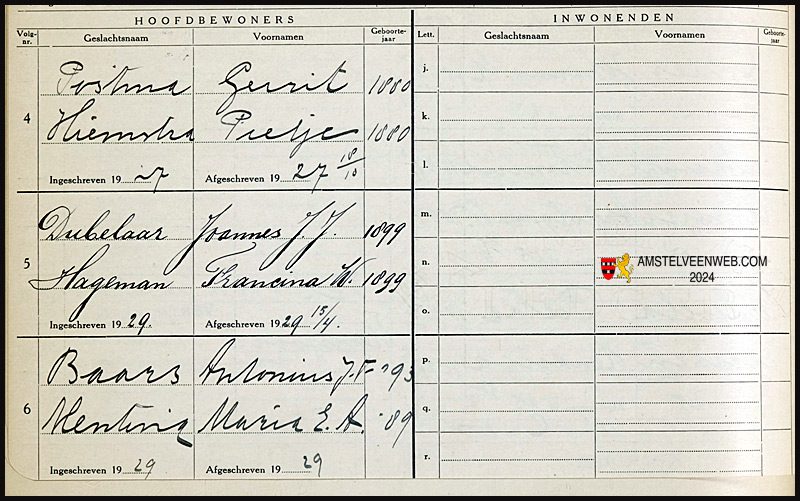 HOOFDBEWONERS INWONENDEN
Volg-nr. Geslachtsnaam Voornamen Geboorte-jaar Lett. Geslachtsnaam Voornamen Geboorte-jaar
Postma Gerrit 1880 j.
4
Hiemstra Pietje 1880 k.
Ingeschreven 19 27 Afgeschreven 19 27 18/10 l.
Dubelaar Joannes J. J. 1899 m.
5 n.
Hageman Francina W. 1899
Ingeschreven 19 29. Afgeschreven 19 29 15/4. o.
AMSTELVEENWEB.COM
2024
Baars Antonius J. 93 p.
6 q.
Mentink Maria E. A. '89
Ingeschreven 19 29 Afgeschreven 19 29 r.